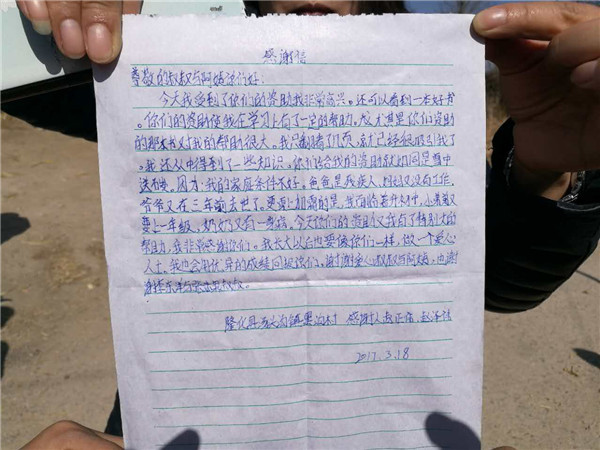 感谢信
尊敬的叔叔与阿姨你们好:
今天我受到了你们的资助我非常高兴。还可以看到一本好书
。你们的资助使我在学习上有了一定的帮助。尤其是你们资助
的那本书对我的帮助很大。我只翻看了几页,就已经很吸引我了
,我还从中得到了一些知识。你们给我的资助就如同是雪中
送炭。因为:我的家庭条件不好。爸爸是残疾人,没有工作.
爷爷又在三年前去世了。更要加霜的是,我面临着升初中,小弟弟又
要上一年级,奶奶又有一身病。今天你们的资助又我有了特别大的
帮助,我非常感谢你们。我长大以后也要像你们一样,做一个爱心
人士,我也会用优异的成绩回报你们。谢谢爱心叔叔与阿姨,也谢
谢
叔叔。
隆化县 沟镇 村 感谢人:赵
2017.3.18